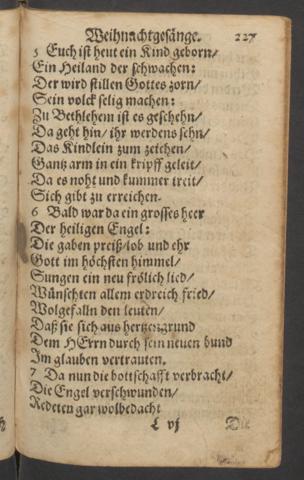 Weihnachtgesänge. 227
5 Euch ist heut ein Kind geborn/
Ein Heiland der schwachen:
Der wird stillen Gottes zorn/
Sein volck selig machen:
Zu Bethlehem ist es geschehn/
Da geht hin/ ihr werdens sehn/
Das Kindlein zum zeichen/
Gantz arm in ein kripff geleit/
Da es noht und kummer treit/
Sich gibt zu erreichen.
6 Bald war da ein grosses heer
Der heiligen Engel:
Die gaben preiß/lob und ehr
Gott im höchsten himmel/
Sungen ein neu frölich lied/
Wünschten allem erdreich fried/
Wolgefalln den leuten/
Daß sie sich aus hertzengrund
Dem HErrn durch sein neuen bund
Im glauben vertrauten.
7 Da nun die bottschafft verbracht/
Die Engel verschwunden/
Redeten gar wolbedacht
L vj Die